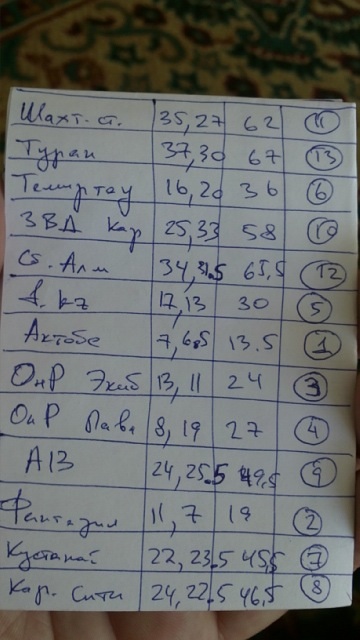 Шахт. ст. 35, 27 62 11
Туран 37, 30 67 13
Темиртау 16, 20 36 6
ЗВД Кар 25, 33 58 10
Сб. Алм 34, 31.5 65,5 12
A. kz 17, 13 30 5
Актобе 7, 6.5 13.5 1
ОиР Экиб 13, 11 24 3
ОиР Павл 8, 19 27 4
А13 24, 25.5 49,5 9
Фентазия 11, 7 19 2
Кустанай 22, 23.5 45,5 7
Кар. Сити 24, 22.5 46,5 8